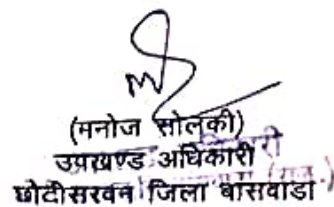 (मनोज सोलंकी)
उपखण्ड अधिकारी
छोटीसरवन जिला बांसवाडा